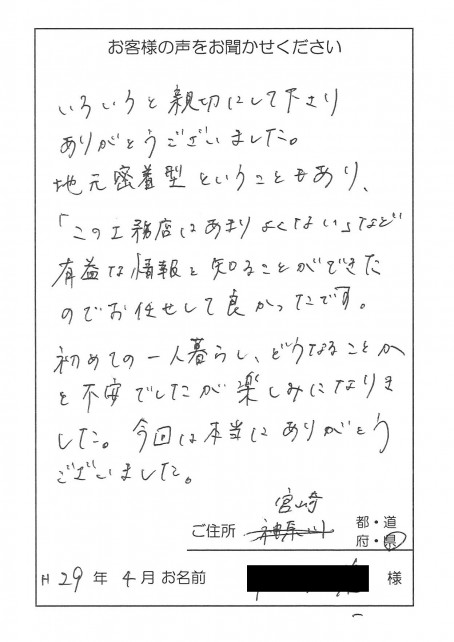 お客様の声をお聞かせください
いろいろと親切にして下さり
ありがとうございました。
地元密着型ということもあり、
「この工務店はあまりよくない」など
有益な情報を知ることができた
のでお任せして良かったです。
初めての一人暮らし、どうなることか
と不安でしたが楽しみになりま
した。今回は本当にありがとう
ございました。
宮崎
ご住所 神奈川 都・道
府・県
H29年 4月 お名前 様